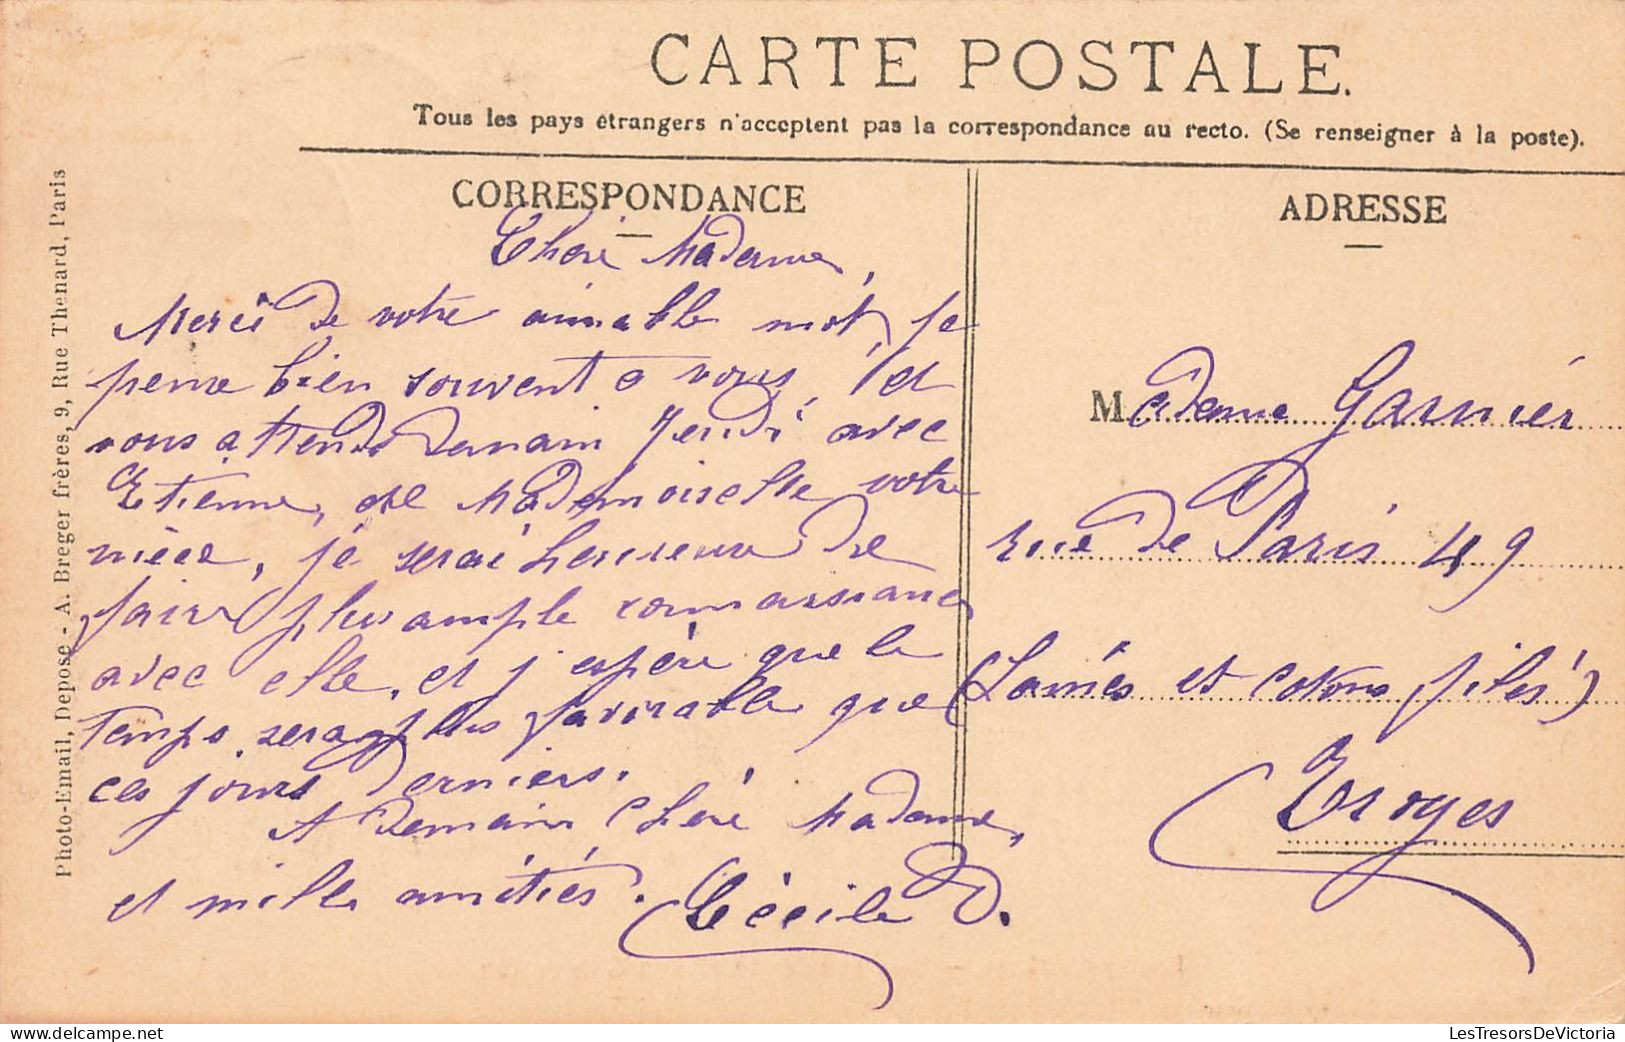 CARTE POSTALE.
Tous les pays étrangers n'acceptent pas la correspondance au recto. (Se renseigner à la poste).
CORRESPONDANCE
Chère Madame,
Merci de votre aimable mot, je
pense bien souvent à vous, et
vous attends demain Jeudi avec
Etienne, et Mademoiselle votre
nièce, je serai heureuse de
faire plus ample connaissance
avec elle, et j'espère que le
temps sera plus favorable que
ces jours derniers.
A demain chère Madame,
et mille amitiés. Cécile D.
ADRESSE
Madame Garnier
rue de Paris 49
(Laines et cotons filés)
Troyes
Photo-Email, Depose - A. Breger frères, 9, Rue Thenard, Paris
LesTresorsDeVictoria